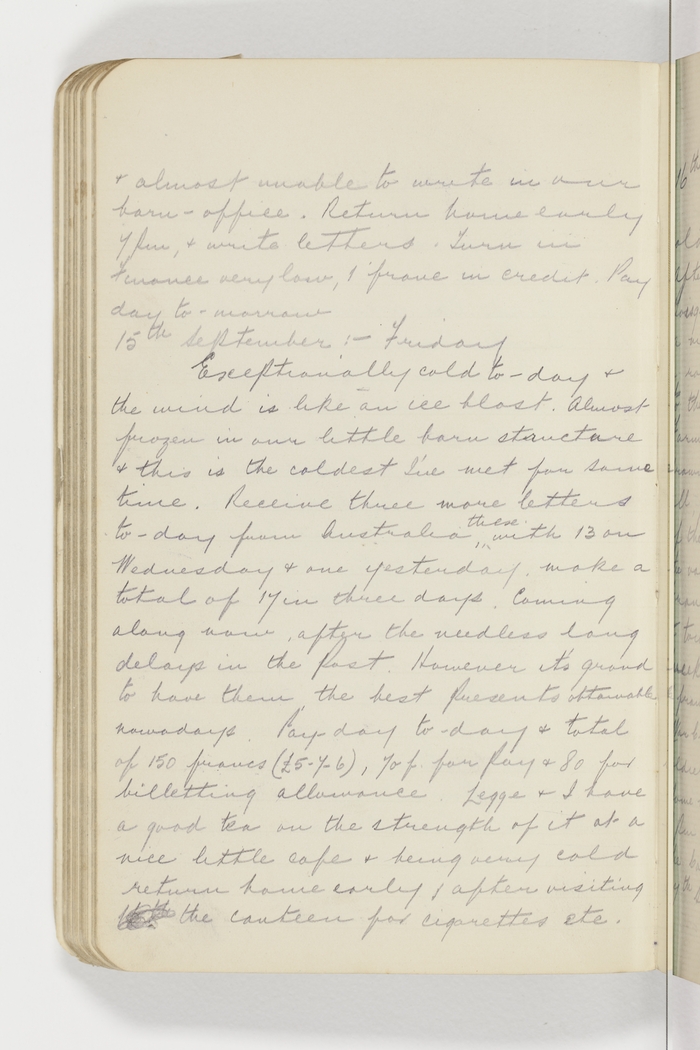 & almost unable to write in our
barn-office. Return home early
7 pm, & write letters. Turn in
Finance very low, 1 franc in credit. Pay
day to-morrow
15th September :- Friday
Exceptionally cold to-day &
the wind is like an ice blast. Almost
frozen in our little barn structure
& this is the coldest I've met for some
time. Receive three more letters
to-day from Australia these with 13 on
Wednesday & one yesterday, make a
total of 17 in three days. Coming
along now, after the needless long
delays in the post. However its grand
to have them, the best presents obtainable
nowadays. Pay-day to-day & total
of 150 francs (£5-7-6), 70 f. for Pay & 80 for
billetting allowance. Legge & I have
a good tea on the strength of it at a
nice little cafe & being very cold
return home early, after visiting
the canteen for cigarettes etc.
16th